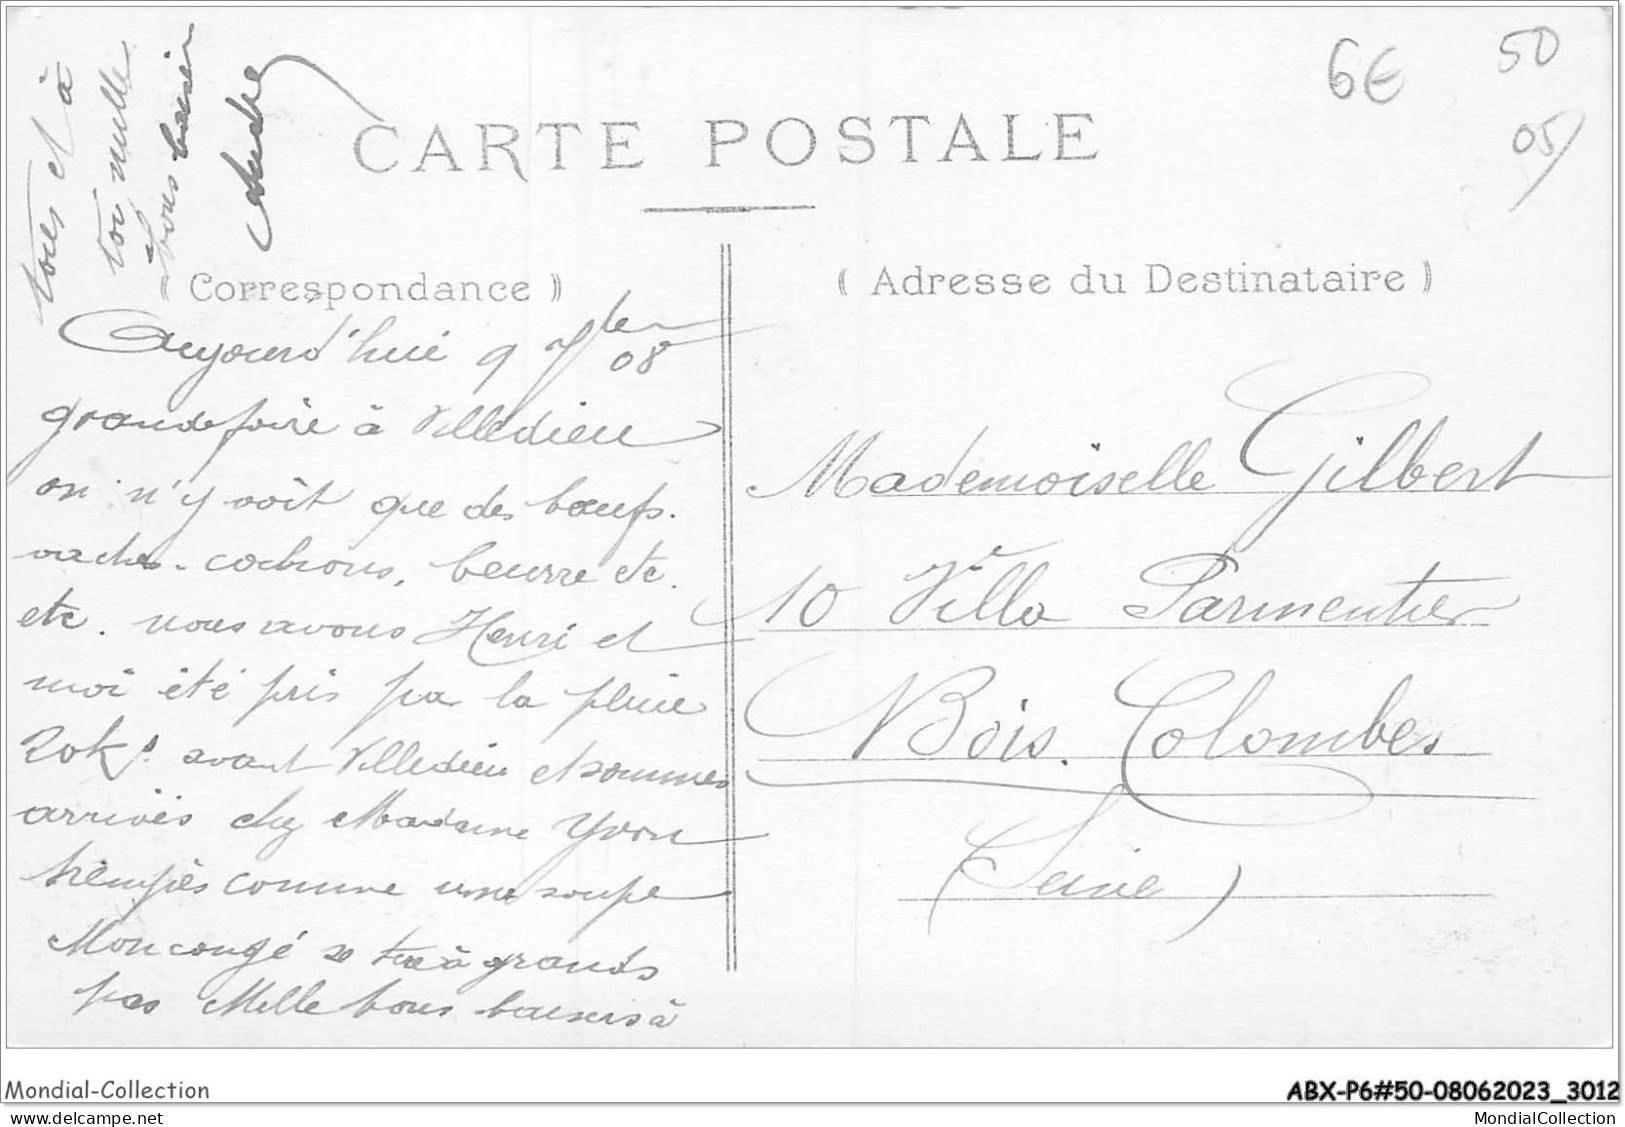 6€
50
05
CARTE POSTALE
(Correspondance)
(Adresse du Destinataire)
Aujourd'hui 9 7bre 08
grande foire à Villedieu
on n'y voit que des boeufs.
vaches. cochons, beurre etc.
etc. nous avons Henri et
moi été pris par la pluie
20ks avant Villedieu et sommes
arrivés chez Madame Yvon
trempés comme une soupe
Mon congé se tire à grands
pas Mille bons baisers à
tous et à
toi mille
bons baisers
André
Mademoiselle Gilbert
10 Villa Parmentier
Bois. Colombes
(Seine)
Mondial-Collection
ABX-P6#50-08062023_3012
delcampe.net
MondialCollection